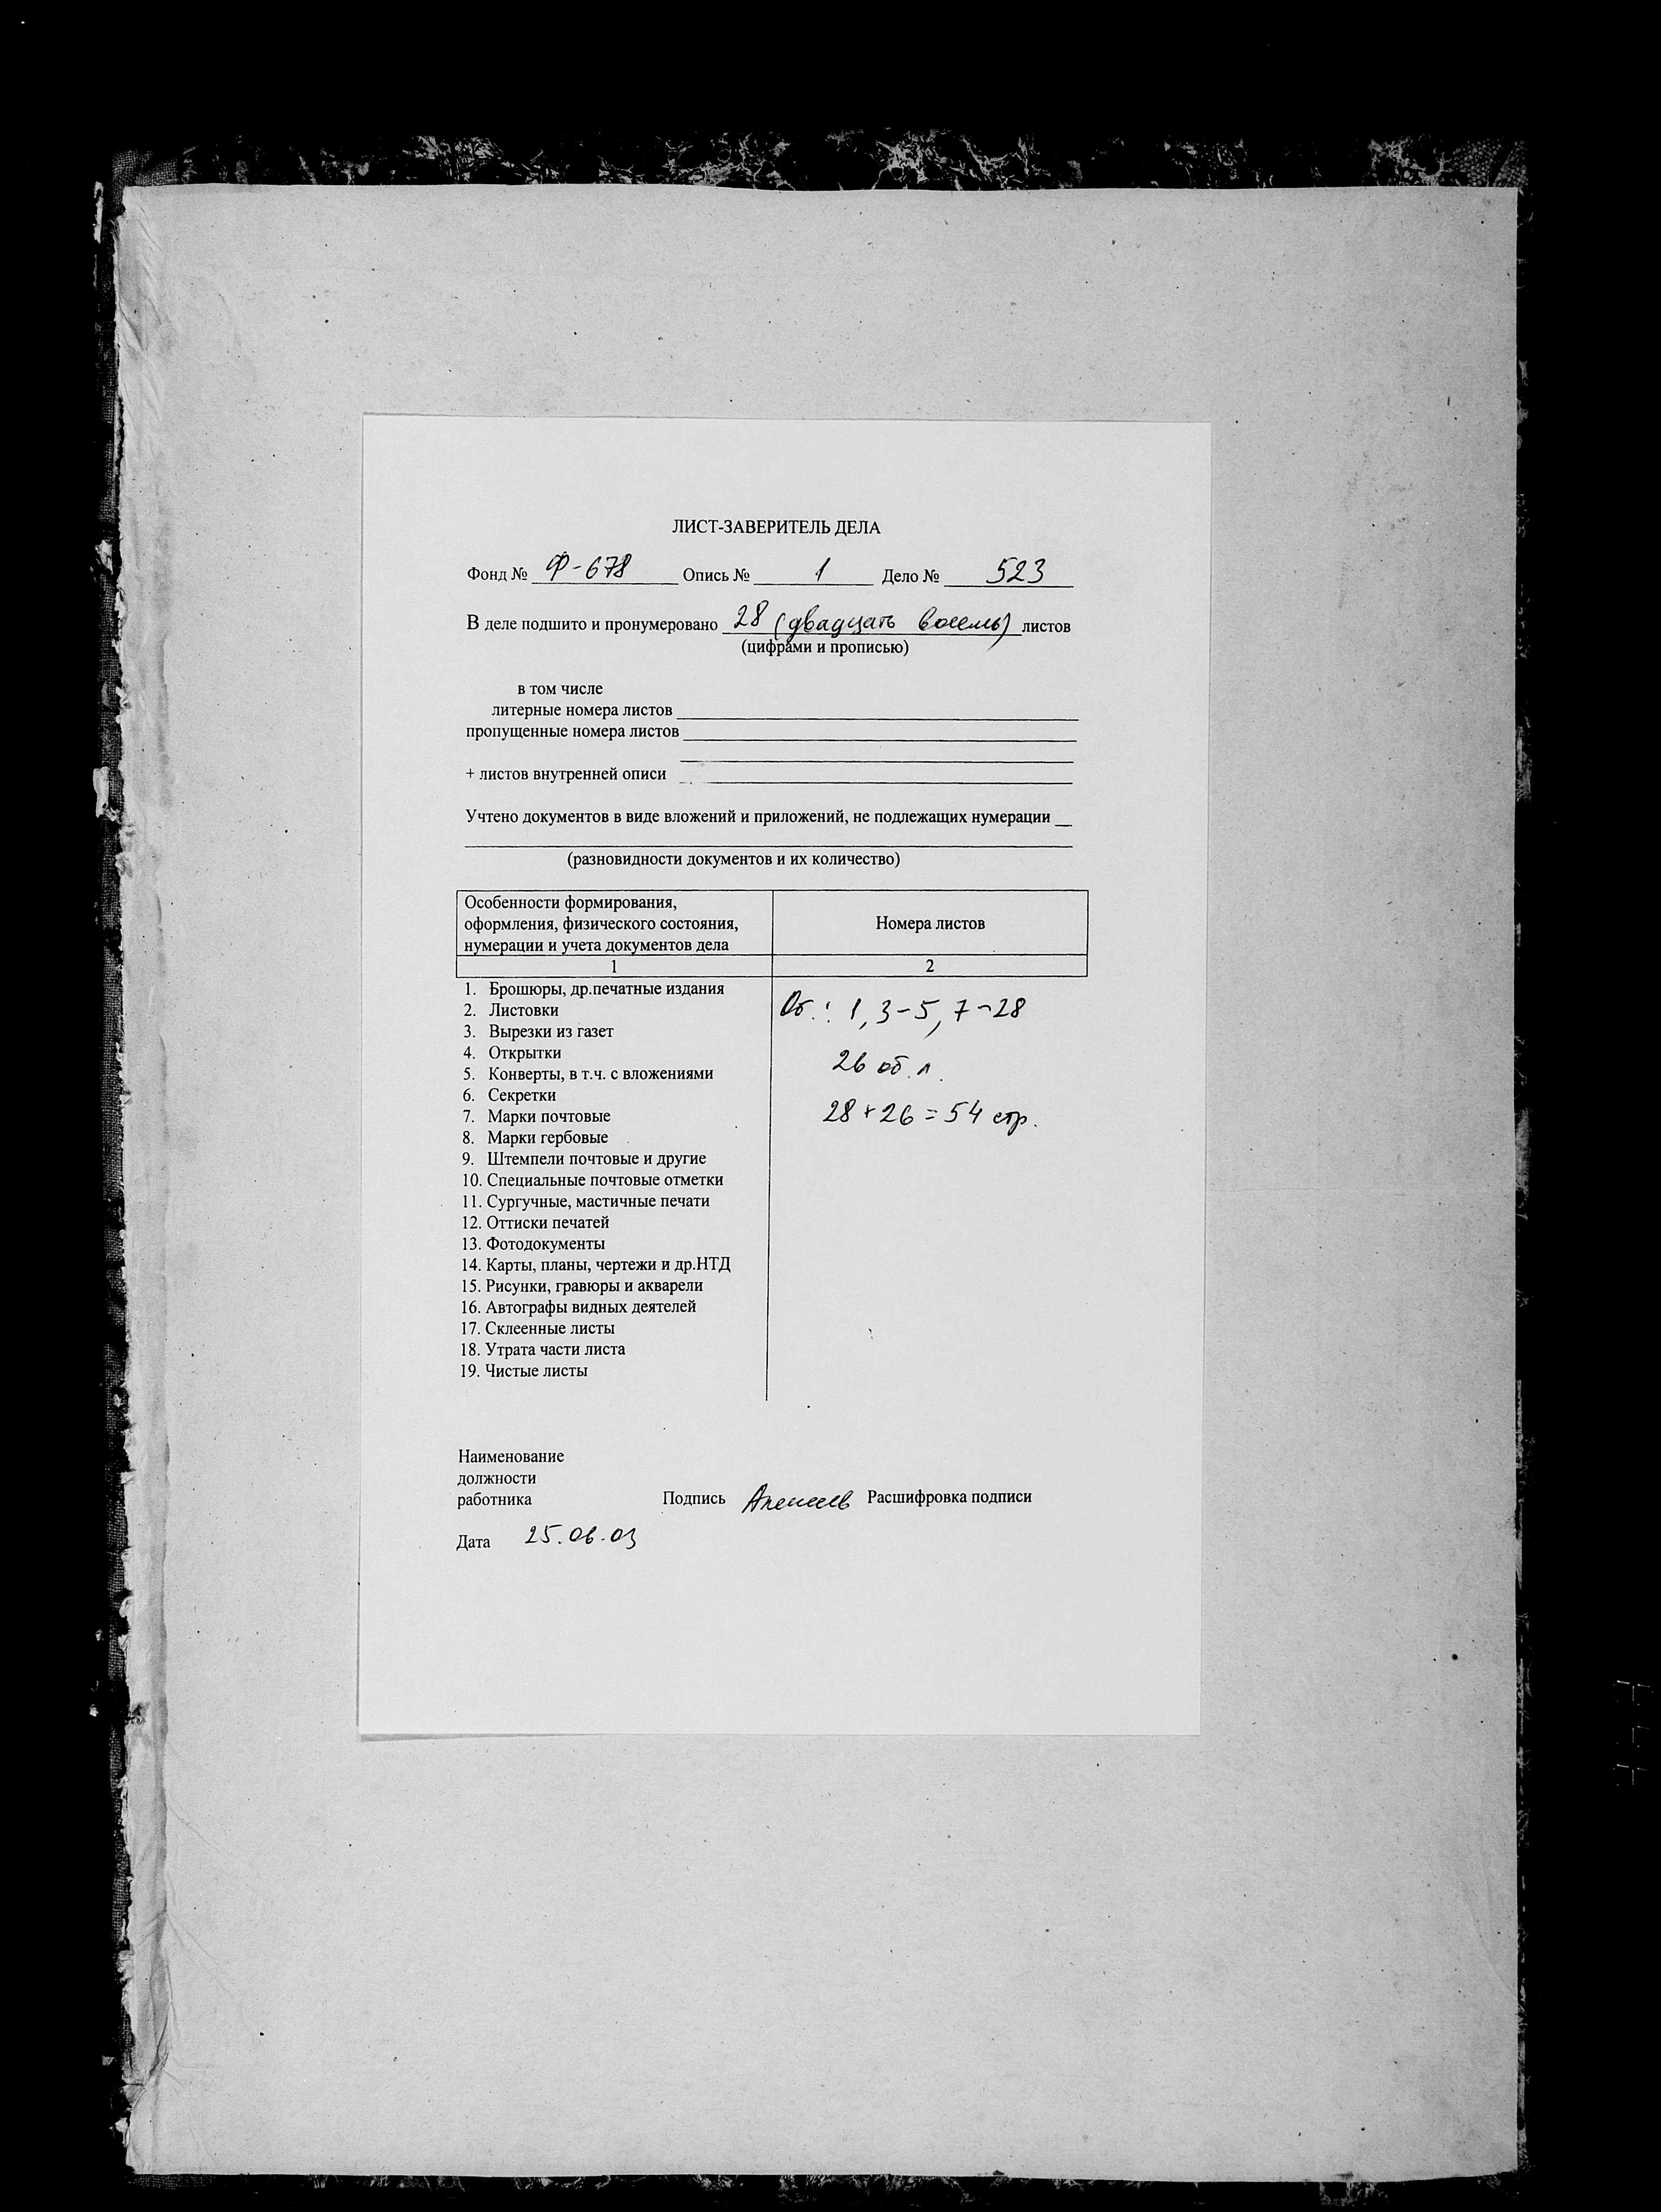 ЛИСТ-ЗАВЕРИТЕЛЬ ДЕЛА
Фонд № Ф-678 Опись № 1 Дело № 523
В деле подшито и пронумеровано 28 (двадцать восемь) листов
(цифрами и прописью)
в том числе
литерные номера листов
пропущенные номера листов
+ листов внутренней описи
Учтено документов в виде вложений и приложений, не подлежащих нумерации
(разновидности документов и их количество)
Особенности формирования,
оформления, физического состояния,
нумерации и учета документов дела
Номера листов
1 2
1. Брошюры, др.печатные издания
2. Листовки
3. Вырезки из газет
4. Открытки
5. Конверты, в т.ч. с вложениями
6. Секретки
7. Марки почтовые
8. Марки гербовые
9. Штемпели почтовые и другие
10. Специальные почтовые отметки
11. Сургучные, мастичные печати
12. Оттиски печатей
13. Фотодокументы
14. Карты, планы, чертежи и др.НТД
15. Рисунки, гравюры и акварели
16. Автографы видных деятелей
17. Склеенные листы
18. Утрата части листа
19. Чистые листы
Об.: 1, 3-5, 7-28
26 об. л.
28+26=54 стр.
Наименование
должности
работника Подпись Расшифровка подписи
Дата 25.06.03